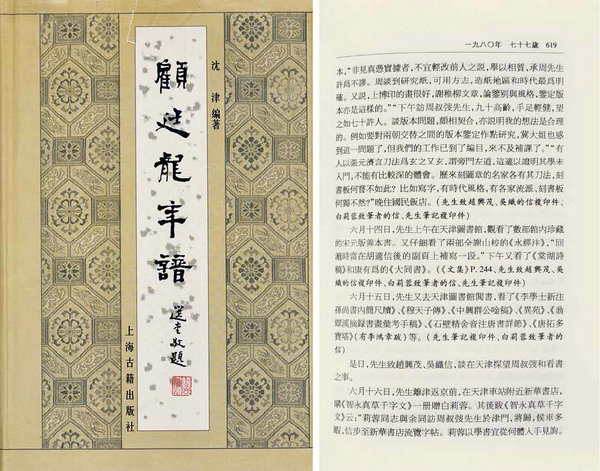 沈津 編著
顧廷龍年譜
選堂敬題
上海古籍出版社
一九八〇年 七十七歲 619
本,“非見真憑實據者,不宜輕改前人之説,舉以相質,承周先生
許爲不謬。周談到研究紙,可用方志,造紙地區和時代最爲明
確。又説,上博印的畫很好,謝稚柳文章,論鑒别與風格,鑒定版
本亦是這樣的。”“下午訪周叔弢先生,九十高齡,手足輕健,望
之如七十許人。談版本問題,頗相契合,亦説明我的想法是合理
的。例如要對兩朝交替之間的版本鑒定作點研究,冀大姐也感
到這一問題了,但我們的工作已到了編目,來不及補課了。”“有
人以張元濟言刀法爲玄之又玄,謂旁門左道,這適以證明其學未
入門,不能有比較深的體會。歷來刻圖章的名家各有其刀法,刻
書板何嘗不如此?比如寫字,有時代風格,有各家流派,刻書板
何獨不然?”晚住國民飯店。(先生致趙興茂、吴織的信複印件、
白莉蓉致筆者的信、先生筆記複印件)
六月十四日,先生上午在天津圖書館,觀看了數部館内珍藏
的宋元版善本書。又仔細看了兩部全謝山校的《水經注》,“回
滬時當在胡適信後的副頁上補寫一段。”下午又看了《棠湖詩
稿》和康有爲的《大同書》。(《文集》P.244、先生致趙興茂、吴
織的信複印件、白莉蓉致筆者的信、先生筆記複印件)
六月十五日,先生又去天津圖書館閲書,看了《李學士新注
孫尚書内簡尺牘》、《穆天子傳》、《中興群公吟稿》、《異苑》、《翁
覃溪摘録書畫彙考手稿》、《石壁精舍音注唐書詳節》、《唐拓多
寶塔》(有李鴻章跋)等。(先生筆記複印件、白莉蓉致筆者的
信)
是日,先生致趙興茂、吴織信,談在天津探望周叔弢和看書
之事。
六月十六日,先生離津返京前,在天津車站附近新華書店,
購《智永真草千字文》一册贈白莉蓉。其後跋《智永真草千字
文》云:“莉蓉同志與余同訪周叔弢先生於津門,將歸,候車多
暇,信步至新華書店流覽字帖。莉蓉以學書宜從何體入手見詢。